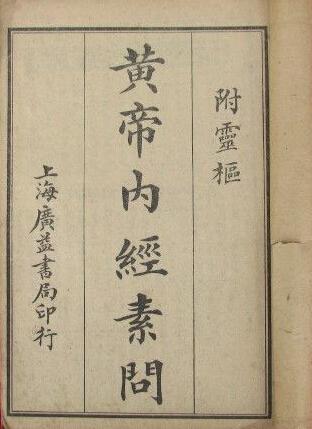 附靈樞
黃帝內經素問
上海廣益書局印行